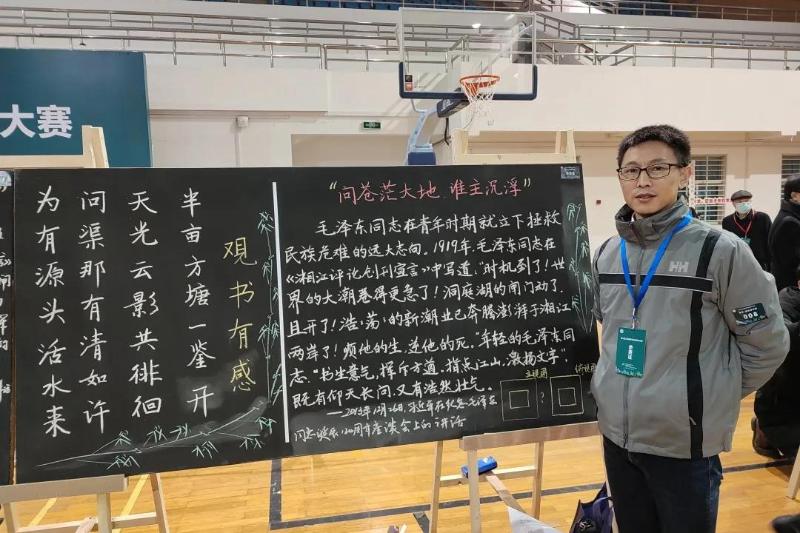 大赛
观书有感
半亩方塘一鉴开
天光云影共徘徊
问渠那有清如许
为有源头活水来
“问苍茫大地 谁主沉浮”
毛泽东同志在青年时期就立下拯救
民族危难的远大志向。1919年,毛泽东同志在
《湘江评论创刊宣言》中写道:“时机到了!世
界的大潮卷得更急了!洞庭湖的闸门动了,
且开了!浩〻荡〻的新潮业已奔腾澎湃于湘江
两岸了!顺他的生,逆他的死。”年轻的毛泽东同
志,“书生意气,挥斥方遒。指点江山,激扬文字”,
既有仰天长问,又有浩然壮气。
——2013年12月26日,习近平在纪念毛泽东
同志诞辰120周年座谈会上的讲话
主视图 ? 俯视图
HH
006